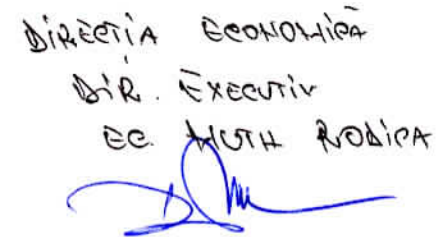 DIRECȚIA ECONOMICĂ
DIR. EXECUTIV
EC. MUTH RODICA